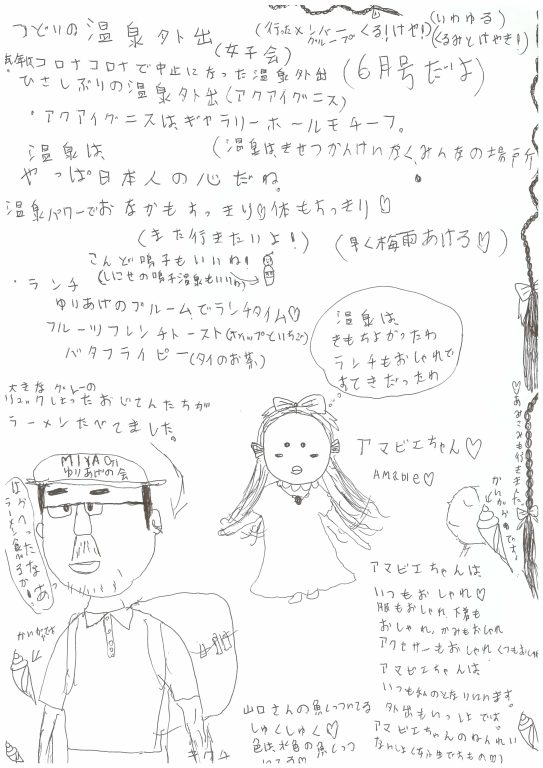 つどいの温泉外出
(女子会)
(行ったメンバーグループ くる!けや!)
(いわゆる)
(くるみとけやき!)
コロナコロナで中止になった温泉外出
(6月号だよ)
ひさしぶりの温泉外出(アクアイグニス)
・アクアイグニスは、ギャラリーホールモチーフ。
(温泉は、きせつかんけいなく、みんなの場所
温泉は、
やっぱ日本人の心だね。
温泉パワーでおなかもすっきり♡体もすっきり♡
(また行きたいよ!)
(早く梅雨あけろ♡)
こんど鳴子もいいね!
(しにせの鳴子温泉もいいか)
・ランチ
ゆりあげのプルームでランチタイム♡
フルーツフレンチトースト(ホイップといちご)
バタフライピー(タイのお茶)
温泉は、
きもちよかったわ
ランチもおしゃれで
すてきだったわ
大きなグレーの
リュックしょったおじさんたちが
ラーメンたべてました。
アマビエちゃん♡
AMABIE♡
♡あみこみも行きました
MIYAGI
ゆりあげの会
はらへったなぁ
ラーメン食うか!
かいがらです
かいがらです。
アマビエちゃんは、
いつもおしゃれ♡
服もおしゃれ、下着も
おしゃれ、かみもおしゃれ
アクセサーもおしゃれ くつもおしゃれ
アマビエちゃんは
いつも私のとなりにいます。
外出もいっしょでは。
アマビエちゃんのねんれい
ないしょ
山口さんの魚しっついてる
しゅくしゅく♡
色は、水色の魚しっつ
いてる♡